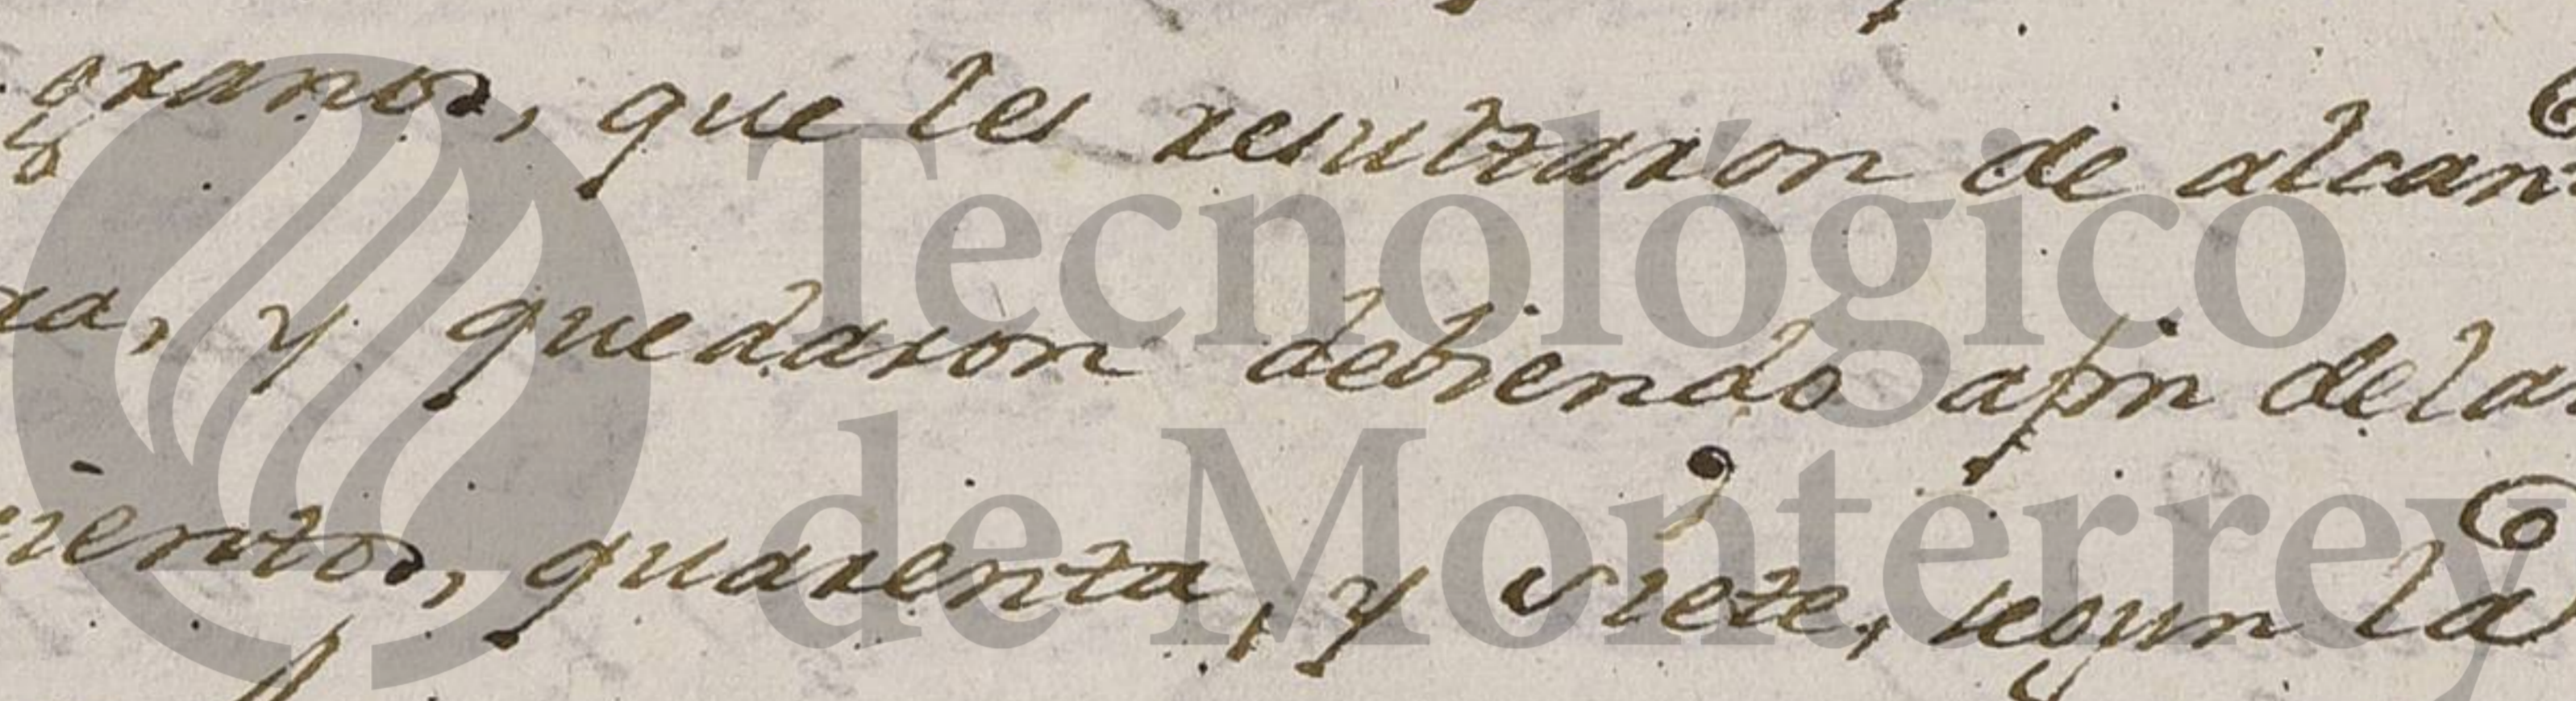 granos, que les resultaron de alcan
ra, y quedaron debiendo afin dela
cientos, quarenta, y siete, segun la
Tecnológico
de Monterrey